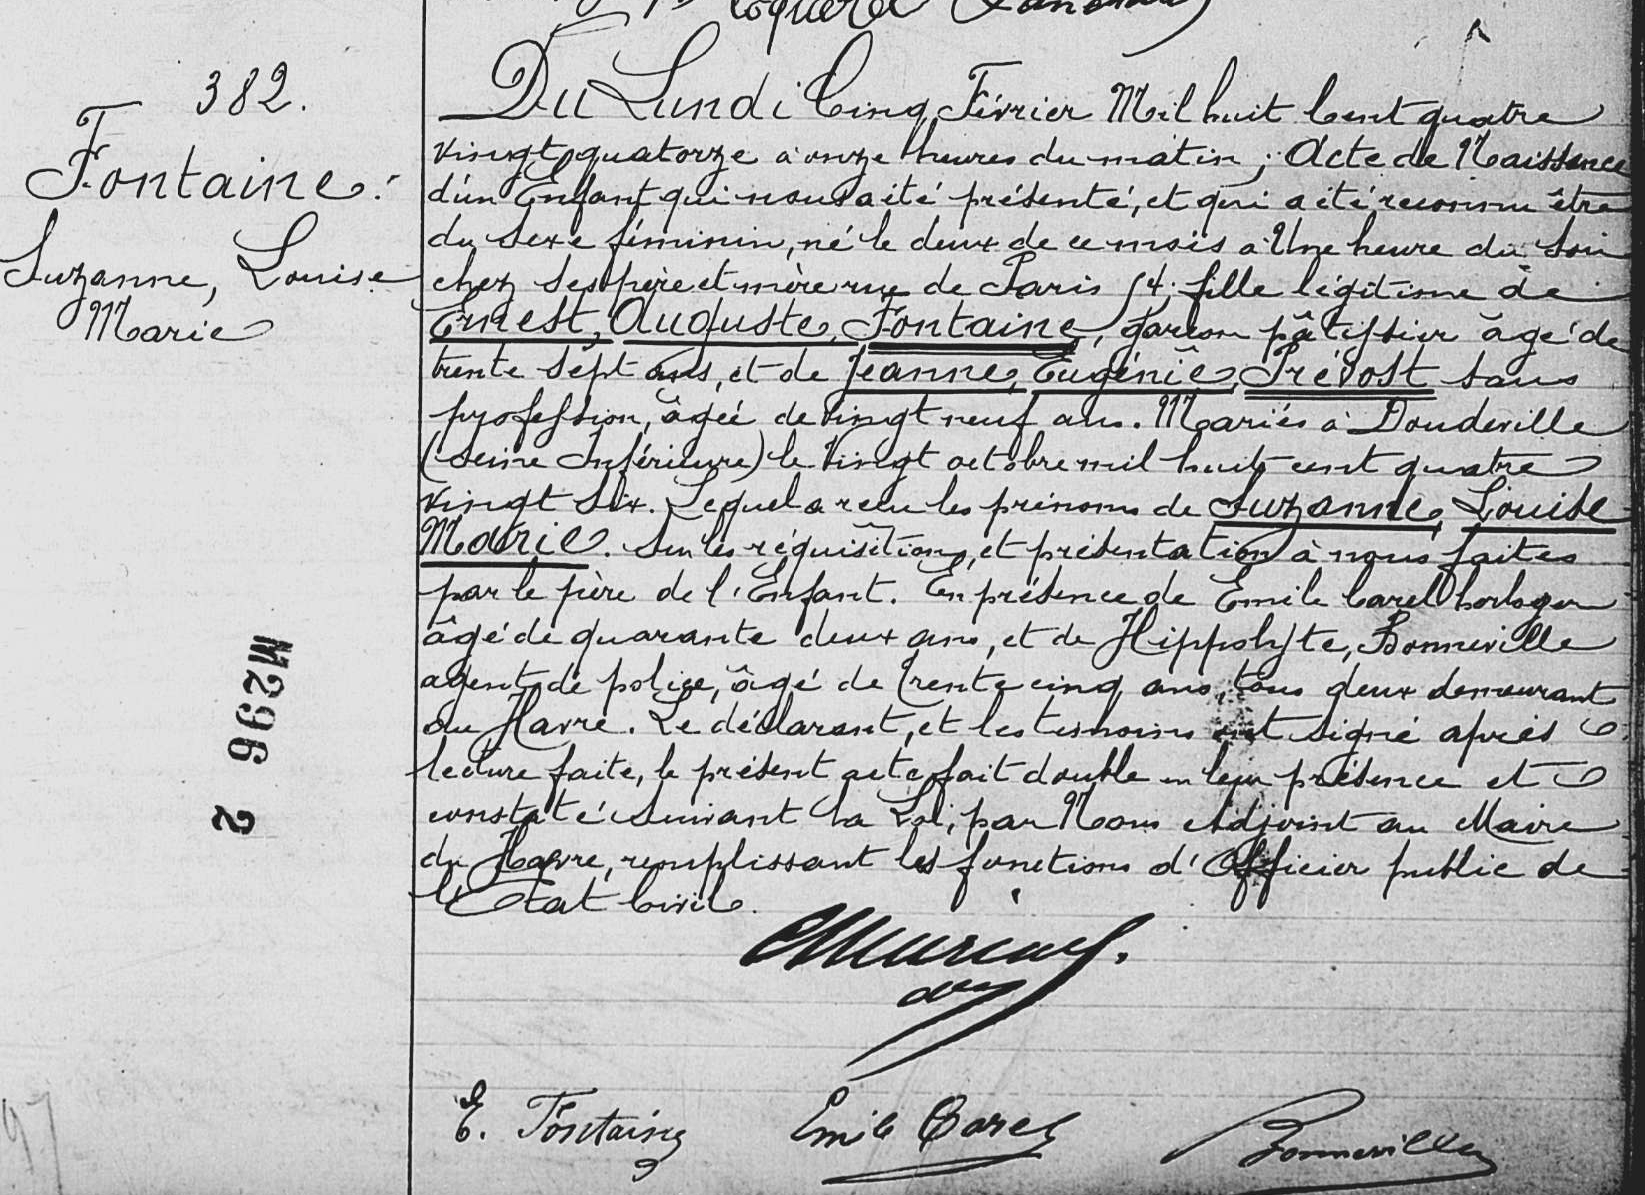 382.
Fontaine.
Suzanne, Louise
Marie
Du Lundi Cinq Février Mil huit Cent quatre
vingt quatorze à onze heures du matin ; Acte de Naissance
d'un Enfant qui nous a été présenté, et qui a été reconnu être
du sexe féminin, né le deux de ce mois à Une heure du Soir
chez ses père et mère rue de Paris fille légitime de
Ernest, Auguste, Fontaine, garçon pâtissier âgé de
trente sept ans, et de Jeanne, Eugénie, Prévost sans
profession, âgée de vingt neuf ans. Mariés à Doudeville
(Seine Inférieure) le Vingt octobre mil huit cent quatre
vingt six. Lequel a reçu les prénoms de Suzanne, Louise
Marie. Sur les réquisitions, et présentation à nous faites
par le père de l'Enfant. En présence de Emile Carel horloger
âgé de quarante deux ans, et de Hippolyte, Bonneville
agent de police, âgé de trente cinq ans, tous deux demeurant
au Havre. Le déclarant, et les témoins ont signé après
lecture faite, le présent acte fait double en leur présence et
constaté suivant la Loi, par Nous Adjoint au Maire
du Havre, remplissant les fonctions d'Officier public de
l'Etat Civil.
M296 2
E. Fontaine
Emile Carel
Bonneville
97